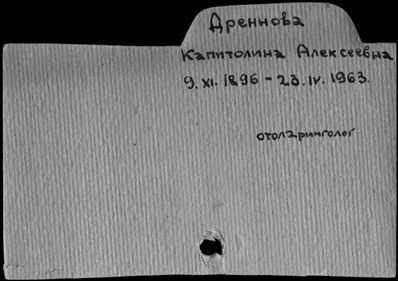 Дреннова
Капитолина Алексеевна
9.XI.1896 - 23.IV.1963.
отоларинголог